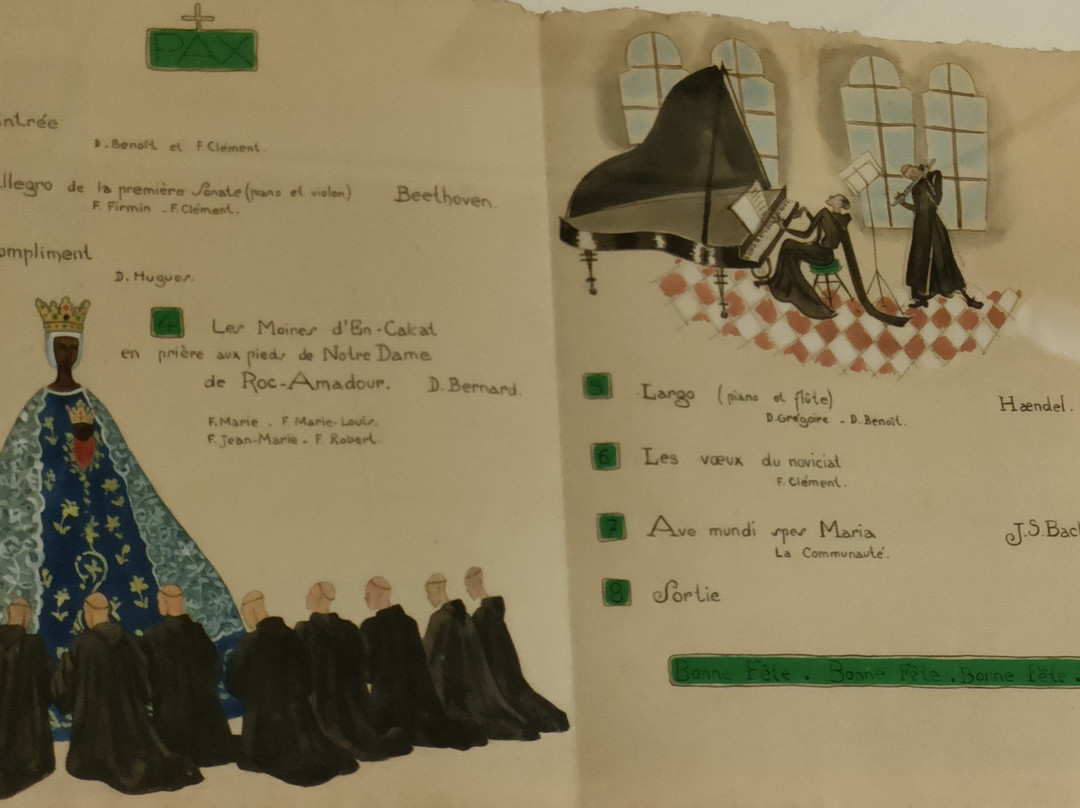 PAX
ntrée
D. Benoît et F. Clément.
llegro de la première Sonate (piano et violon) Beethoven.
F. Firmin - F. Clément.
ompliment
D. Hugues.
4 Les Moines d'En-Calcat
en prière aux pieds de Notre Dame
de Roc-Amadour. D. Bernard.
F. Marie - F. Marie-Louis.
F. Jean-Marie - F. Robert.
5 Largo (piano et flûte) Hændel.
D. Grégoire - D. Benoît.
6 Les vœux du noviciat
F. Clément.
7 Ave mundi spes Maria J.S. Bach
La Communauté.
8 Sortie
Bonne Fête . Bonne Fête . Bonne Fête .